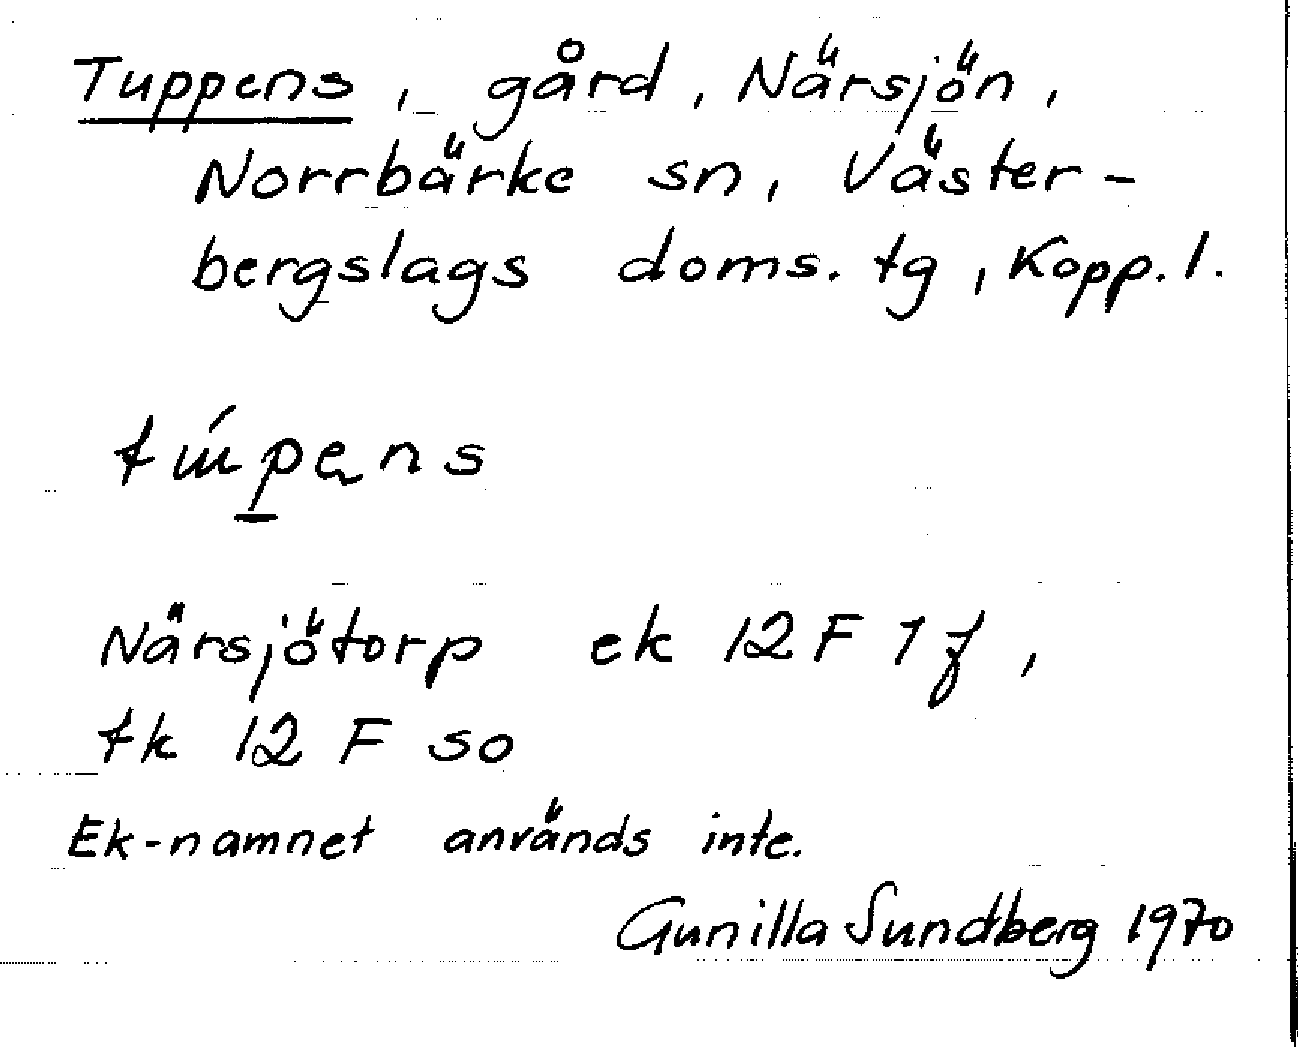 Tuppens, gård, Närsjön,
Norrbärke sn, Väster-
bergslags doms. tg, Kopp. l.
túpens
Närsjötorp ek 12 F 1 f,
tk 12 F so
Ek-namnet används inte.
Gunilla Sundberg 1970